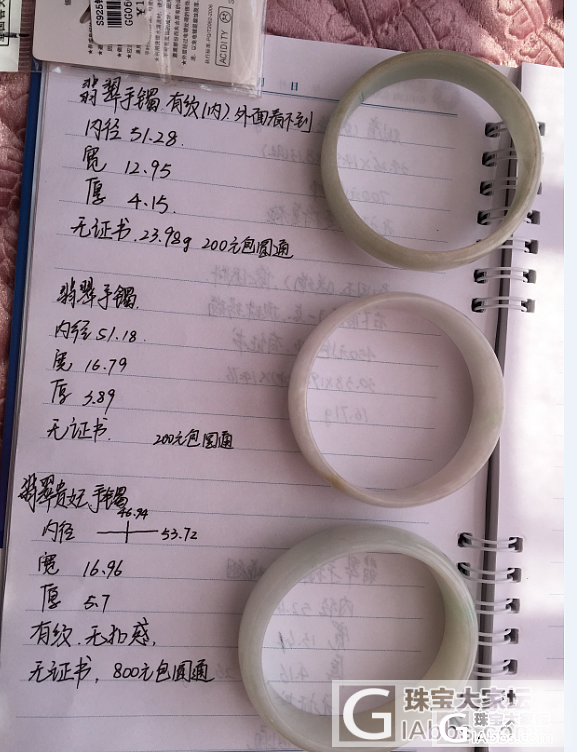 S925
GG06
¥1
ACIDITY
日
翡翠手镯.有纹(内).外面看不到
内径 51.28
宽 12.95
厚 4.15.
无证书.23.98g 200元包圆通
翡翠手镯.
内径 51.18.
宽 16.79
厚 3.89
无证书. 200元包圆通
翡翠贵妃手镯
46.94
内径 53.72
宽 16.96
厚 5.7
有纹.无扣感.
无证书，800元包圆通
珠宝大家坛
GIAbbs
珠宝大家坛